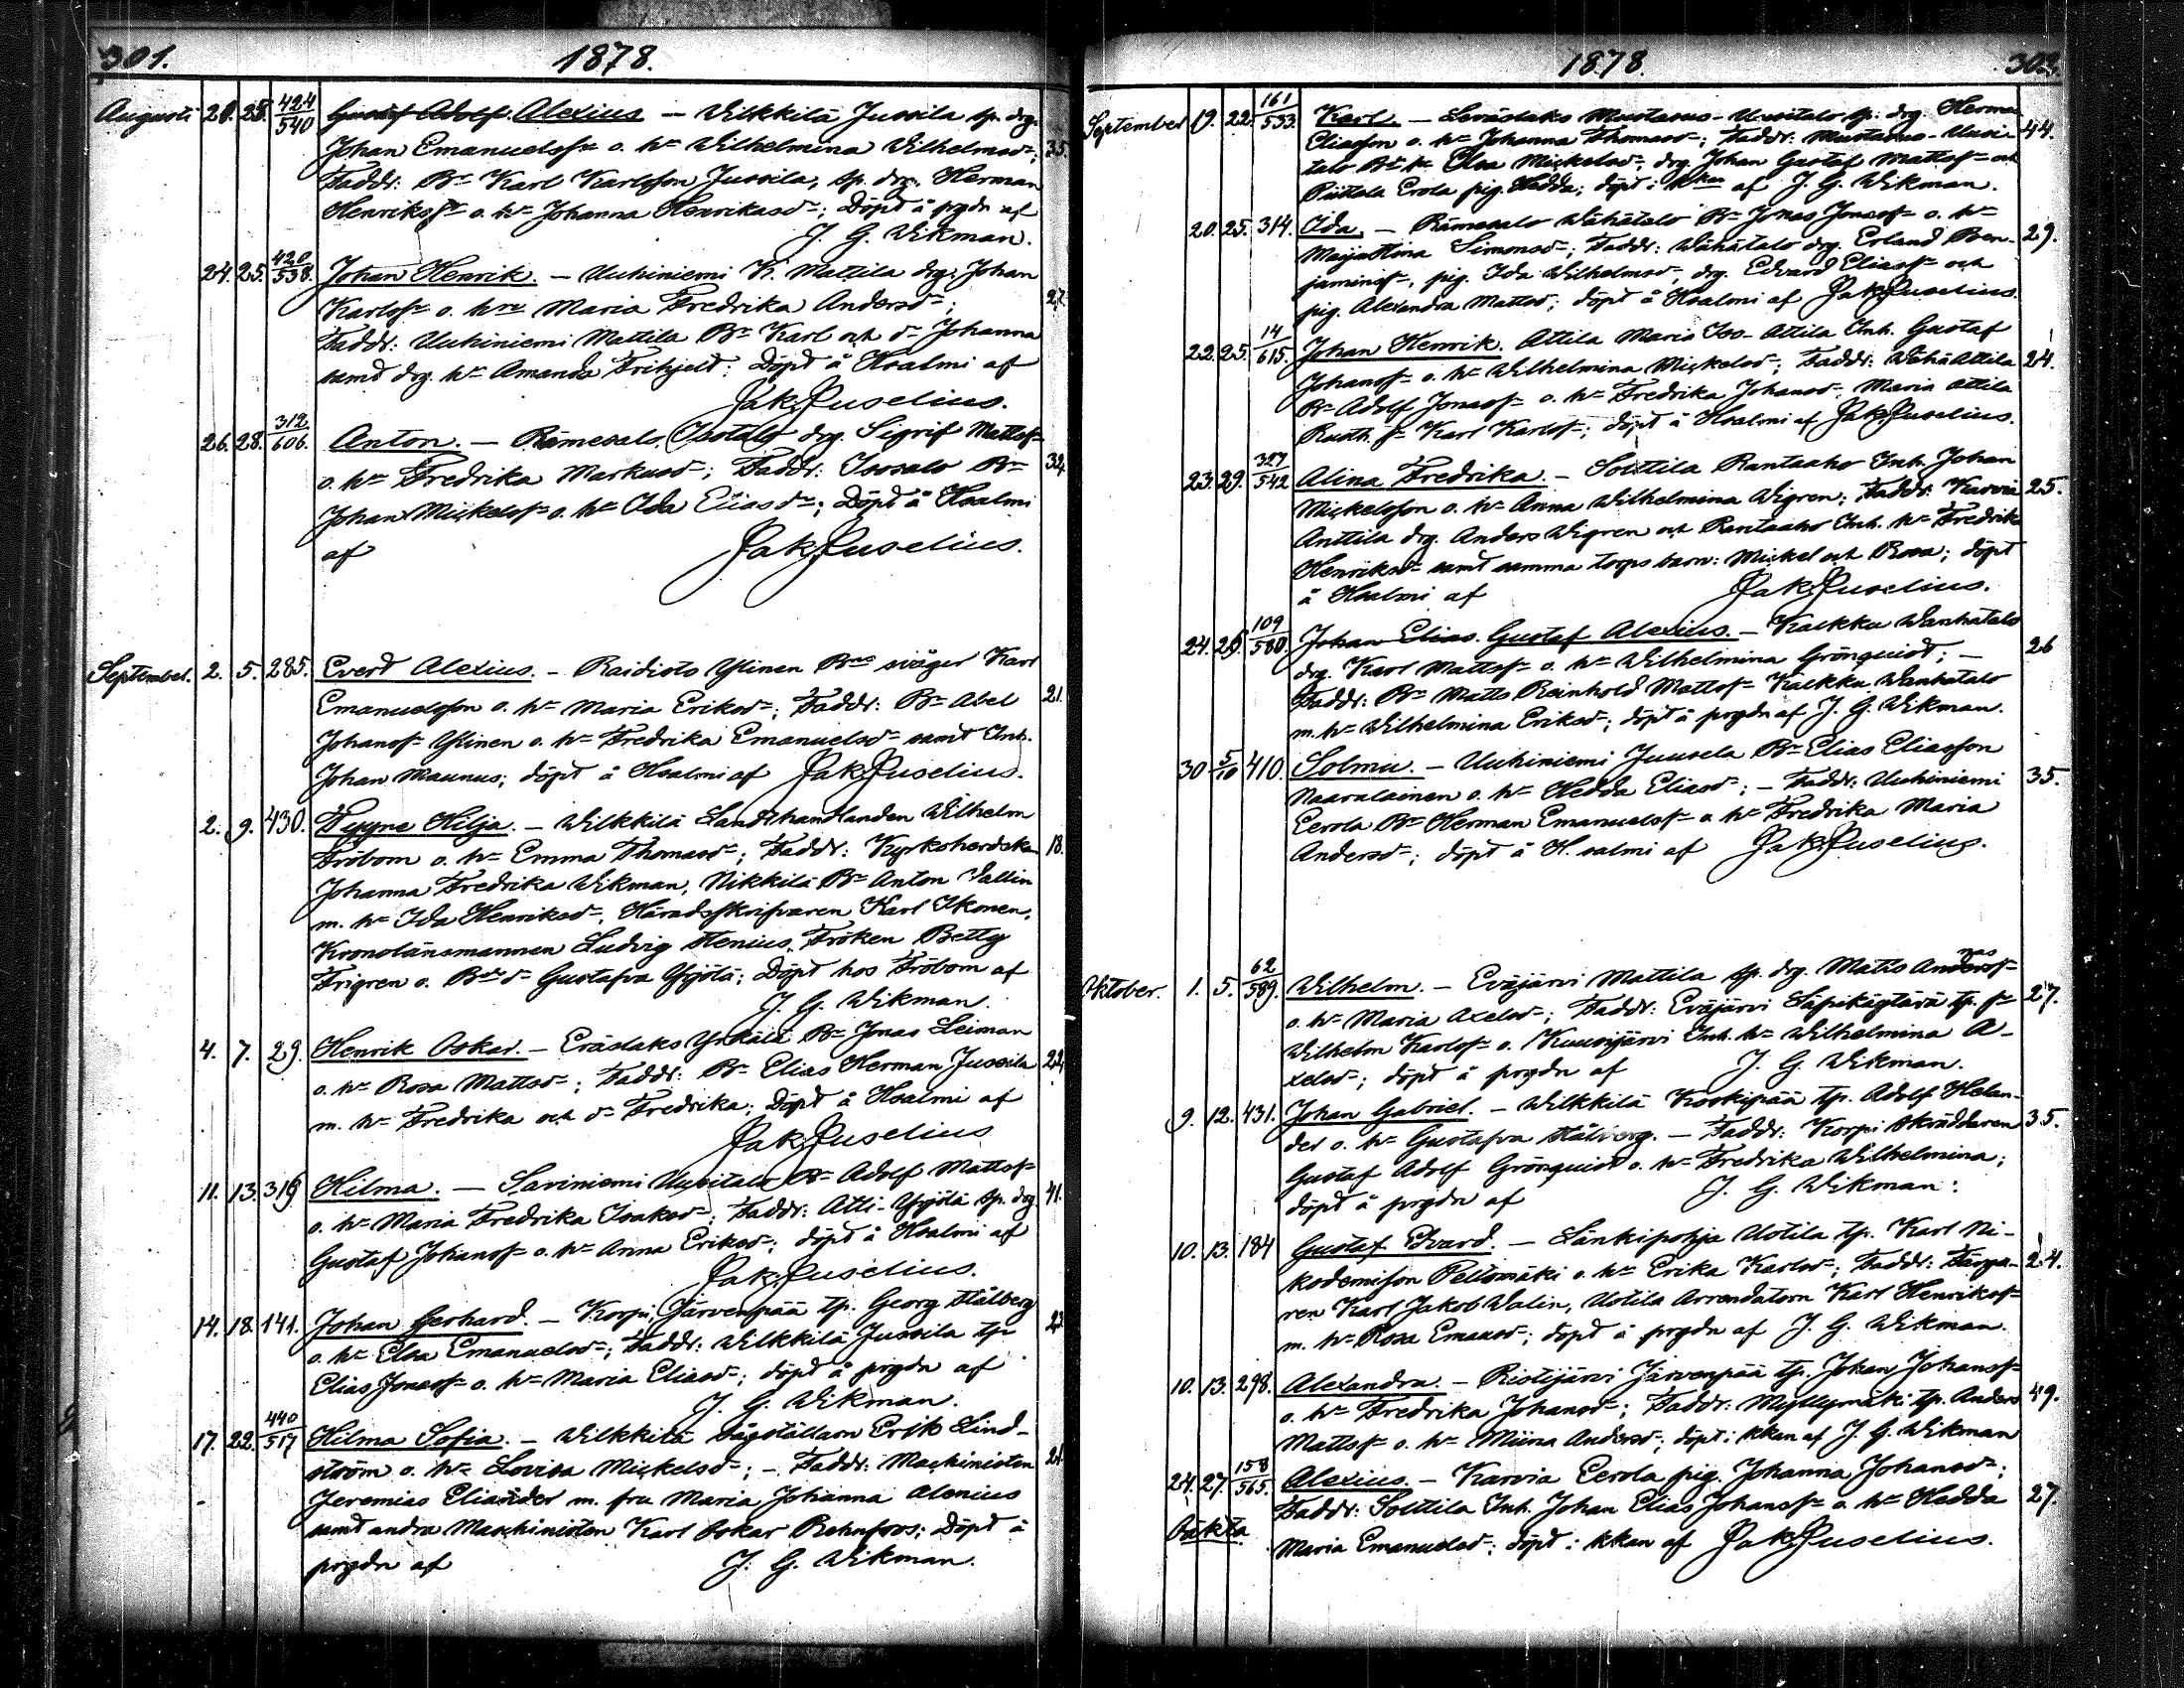 301. 1878.
Augusti 20. 25. 424/540 Gustaf Adolf. Alexius — Wilkkilä Jussila tp. drg.
Johan Emanuelss= o. h= Wilhelmina Wilhelmsd=; 35.
Faddr: B= Karl Karlsson Jussila, tp. drg. Herman
Henrikss= o. h= Johanna Henriksd=; Döpt å prgdn af
J. G. Wikman.
24. 25. 420/538. Johan Henrik. — Uuhiniemi K. Mattila drg. Johan
Karlss= o. h= Maria Fredrika Andersd=; 27.
Faddr: Uuhiniemi Mattila B= Karl och d= Johanna
samt drg. h= Amanda Frihjelt; Döpt å Hsalmi af
Jak. Juselius.
26. 28. 312/606. Anton. — Rämesalo, Isotalo drg. Sigrif Mattss=
o. h= Fredrika Markusd=; Faddr: Isosalo B= 32.
Johan Mickelss= o. h= Ida Eliasd=; Döpt å Hsalmi
af Jak. Juselius.
September. 2. 5. 285. Evert Alexius. — Raidisto Ylinen B= svåger Karl
Emanuelsson o. h= Maria Eriksd=; Faddr: B= Abel 21.
Johanss= Ylinen o. h= Fredrika Emanuelsd= samt Inh.
Johan Maunus; döpt å Hsalmi af Jak. Juselius.
2. 9. 430. Tyyne Hilja. — Wilkkilä Landthandlanden Wilhelm
Fröbom o. h= Emma Thomasd=; Faddr: Kyrkoherdskan 18.
Johanna Fredrika Wikman, Nikkilä B= Anton Vallin
m. h= Ida Henriksd=, Häradsskrifvaren Karl Ikonen,
Kronolänsmannen Ludvig Stenius, Fröken Betty
Frigren o. B= d= Gustafva Yrjölä; Döpt hos Fröbom af
J. G. Wikman.
4. 7. 29. Henrik Oskar. — Eräslaks Yrkälä B= Jonas Leiman
o. h= Rosa Mattsd=; Faddr: B= Elias Herman Jussila 22.
m. h= Fredrika och d= Fredrika; Döpt å Hsalmi af
Jak. Juselius
11. 13. 319. Hilma. — Saviniemi Uusitalo B= Adolf Mattss=
o. h= Maria Fredrika Isaksd=; Faddr: Atti-Yrjölä tp. drg. 41.
Gustaf Johanss= o. h= Anna Eriksd=; döpt å Hsalmi af
Jak. Juselius.
14. 18. 141. Johan Gerhard. — Korpi, Järvenpää tp. Georg Stålberg
o. h= Elsa Emanuelsd=; Faddr: Wilkkilä Jussila tp.
Elias Jonass= o. h= Maria Eliasd=; döpt å prgdn af
J. G. Wikman.
17. 22. 440/517 Hilma Sofia. — Wilkkilä sågställaren Erik Lind-
ström o. h= Lovisa Mickelsd=; — Faddr: Maskinisten 21.
Jeremias Eliander m. fru Maria Johanna Alenius
samt andra Maskinisten Karl Oskar Rehnfors; Döpt å
prgdn af J. G. Wikman.
1878. 302.
September 19. 22. 161/533. Karl. — Leväslaks Mustasus-Uusitalo tp. drg. Herman
Eliasson o. h= Johanna Thomasd=; Faddr: Mustasus-Uusi- 44.
talo B= h= Elsa Mickelsd=, drg. Johan Gustaf Mattss= och
Piittala Erola pig. Hedda; döpt i kkan af J. G. Wikman.
20. 25. 314. Ida. — Rämesalo Wähätalo B= Jonas Jonass= o. h=
Maja Stina Simonsd=; Faddr: Wähätalo drg. Erland Ben- 29.
jamins=, pig. Ida Wilhelmsd=, drg. Edvard Eliass= och
pig. Alexandra Mattsd; döpt å Hsalmi af Jak. Juselius.
22. 25. 14/615. Johan Henrik. Attila Maria Iso-Attila Inh. Gustaf
Johanss= o. h= Wilhelmina Mickelsd=; Faddr: Wähä Attila 24.
B= Adolf Jonass= o. h= Fredrika Johansd=, Maria Attila
Rusth. s= Karl Karlss=; döpt å Hsalmi af Jak. Juselius.
23. 29. 327/542 Alina Fredrika. — Solttila Rantaaho Inh. Johan
Mickelsson o. h= Anna Wilhelmina Wigren; Faddr: Karvia 25.
Anttila drg. Anders Wigren och Rantaaho Inh. h= Fredrika
Henriksd= samt samma torps barn: Mickel och Rosa; döpt
å Hsalmi af Jak. Juselius.
24. 26. 109/580. Johan Elias. Gustaf Alexius. — Kalkku Wanhatalo
drg. Karl Mattss= o. h= Wilhelmina Grönquist; — 26
Faddr: B= Matts Reinhold Mattss= Kalkku Wanhatalo
m. h= Wilhelmina Eriksd=; döpt å prgdn af J. G. Wikman.
30 5/10 410. Solmu. — Uuhiniemi Juusela B= Elias Eliasson
Naaralainen o. h= Hedda Eliasd=; — Faddr: Uuhiniemi 35.
Eerola B= Herman Emanuelss= o. h= Fredrika Maria
Andersd=; döpt å H. salmi af Jak. Juselius.
Oktober. 1. 5. 62/589. Wilhelm. — Eväjärvi Mattila tp. drg. Matts Anderss=
o. h= Maria Axelsd=; Faddr: Eväjärvi Säpikäytävä tp. s= 27.
Wilhelm Karlss= o. Kuusijärvi Inh. h= Wilhelmina A-
xelsd=; döpt å prgdn af J. G. Wikman.
9. 12. 431. Johan Gabriel. — Wilkkilä Koskipää tp. Adolf Helan-
der o. h= Gustafva Stålberg. — Faddr: Korpi Skräddaren 35.
Gustaf Adolf Grönquist o. h= Fredrika Wilhelmina;
döpt å prgdn af J. G. Wikman.
10. 13. 184 Gustaf Edvard. — Länkipohja Uotila tp. Karl Ni-
kodemisson Peltomäki o. h= Erika Karlsd=; Faddr: Färga- 24.
ren Karl Jakob Walin, Uotila Arrendatorn Karl Henrikss=
m. h= Rosa Emansd=; döpt å prgdn af J. G. Wikman.
10. 13. 298. Alexandra. — Ristijärvi Järvenpää tp. Johan Johanss=
o. h= Fredrika Johansd=; Faddr: Myllymäki tp. Anders 49.
Mattss= o. h= Miina Andersd=; döpt i kkan af J. G. Wikman
24. 27. 158/565. Alexius. — Karvia Eerola pig. Johanna Johansd=;
Faddr: Solttila Inh. Johan Elias Johanss= o. h= Hedda 27.
Oäkta. Maria Emanuelsd=; döpt i kkan af Jak. Juselius.